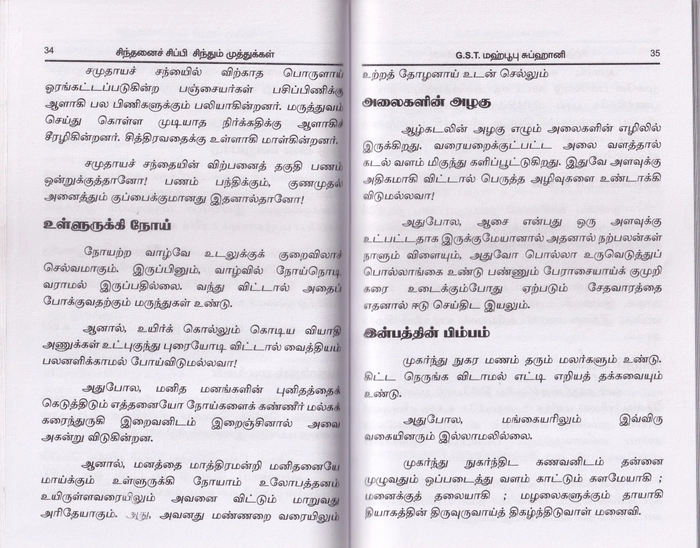 34
சிந்தனைச் சிப்பி சிந்தும் முத்துக்கள்
சமுதாயச் சந்யைில் விற்காத பொருளாய்
ஓரங்கட்டப்படுகின்ற பஞ்சையர்கள் பசிப்பிணிக்கு
ஆளாகி பல பிணிகளுக்கும் பலியாகின்றனர். மருத்துவம்
செய்து கொள்ள முடியாத நிர்க்கதிக்கு ஆளாகிச்
சீரழிகின்றனர். சித்திரவதைக்கு உள்ளாகி மாள்கின்றனர்.
சமுதாயச் சந்தையின் விற்பனைத் தகுதி பணம்
ஒன்றுக்குத்தானோ! பணம் பந்திக்கும், குணமுதல்
அனைத்தும் குப்பைக்குமானது இதனால்தானோ!
உள்ளுருக்கி நோய்
நோயற்ற வாழ்வே உடலுக்குக் குறைவிலாச்
செல்வமாகும். இருப்பினும், வாழ்வில் நோய்நொடி
வராமல் இருப்பதில்லை. வந்து விட்டால் அதைப்
போக்குவதற்கும் மருந்துகள் உண்டு.
ஆனால், உயிர்க் கொல்லும் கொடிய வியாதி
அணுக்கள் உட்புகுந்து புரையோடி விட்டால் வைத்தியம்
பலனளிக்காமல் போய்விடுமல்லவா!
அதுபோல, மனித மனங்களின் புனிதத்தைக்
கெடுத்திடும் எத்தனையோ நோய்களைக் கண்ணீர் மல்கக்
கரைந்துருகி இறைவனிடம் இறைஞ்சினால் அவை
அகன்று விடுகின்றன.
ஆனால், மனத்தை மாத்திரமன்றி மனிதனையே
மாய்க்கும் உள்ளுருக்கி நோயாம் உலோபத்தனம்
உயிருள்ளவரையிலும் அவனை விட்டும் மாறுவது
அரிதேயாகும். அது, அவனது மண்ணறை வரையிலும்
G.S.T. மஹ்பூபு சுப்ஹானி
35
உற்றத் தோழனாய் உடன் செல்லும்
அலைகளின் அழகு
ஆழ்கடலின் அழகு எழும் அலைகளின் எழிலில்
இருக்கிறது. வரையறைக்குட்பட்ட அலை வளத்தால்
கடல் வளம் மிகுந்து களிப்பூட்டுகிறது. இதுவே அளவுக்கு
அதிகமாகி விட்டால் பெருத்த அழிவுகளை உண்டாக்கி
விடுமல்லவா!
அதுபோல, ஆசை என்பது ஒரு அளவுக்கு
உட்பட்டதாக இருக்குமேயானால் அதனால் நற்பலன்கள்
நாளும் விளையும், அதுவோ பொல்லா உருவெடுத்துப்
பொல்லாங்கை உண்டு பண்ணும் பேராசையாய்க் குமுறி
கரை உடைக்கும்போது ஏற்படும் சேதவாரத்தை
எதனால் ஈடு செய்திட இயலும்.
இன்பத்தின் பிம்பம்
முகர்ந்து நுகர மணம் தரும் மலர்களும் உண்டு.
கிட்ட நெருங்க விடாமல் எட்டி எறியத் தக்கவையும்
உண்டு.
அதுபோல, மங்கையரிலும் இவ்விரு
வகையினரும் இல்லாமலில்லை.
முகர்ந்து நுகர்ந்திட கணவனிடம் தன்னை
முழுவதும் ஒப்படைத்து வளம் காட்டும் களமேயாகி ;
மனைக்குத் தலையாகி ; மழலைகளுக்கும் தாயாகி
தியாகத்தின் திருவுருவாய்த் திகழ்ந்திடுவாள் மனைவி.